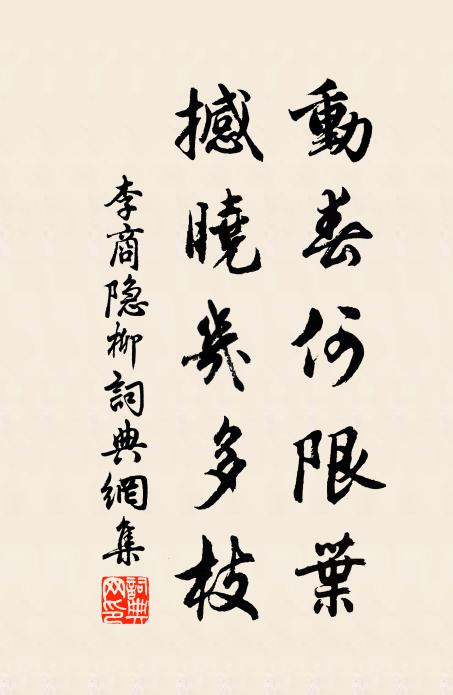 動春何限葉
撼曉幾多枝
李商隐柳詞典網集
詞典网印